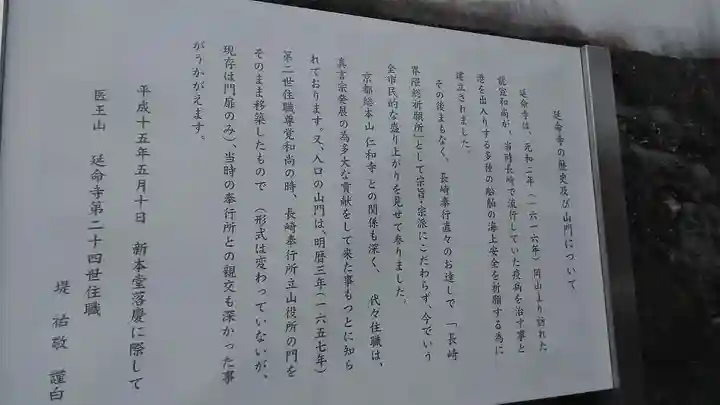 延命寺の歴史及び山門について
延命寺は、元和二年(一六一六年)岡山より訪れた
龍宣和尚が、当時長崎で流行していた疫病を治す事と
港を出入りする多種の船舶の海上安全を祈願する為に
建立されました。
その後まもなく、長崎奉行直々のお達しで「長崎
界隈総祈願所」として宗旨・宗派にこだわらず、今でいう
全市民的な盛り上がりを見せて参りました。
京都総本山 仁和寺 との関係も深く、 代々住職は、
真言宗発展の為多大な貢献をして来た事もつとに知ら
れております。又、入口の山門は、明暦三年(一六五七年)
第二世住職尊覚和尚の時、長崎奉行所立山役所の門を
そのまま移築したもので (形式は変わっていないが、
現存は門扉のみ)、当時の奉行所との親交も深かった事
がうかがえます。
平成十五年五月十日 新本堂落慶に際して
医王山 延命寺第二十四世住職
堤 祐敬 謹白